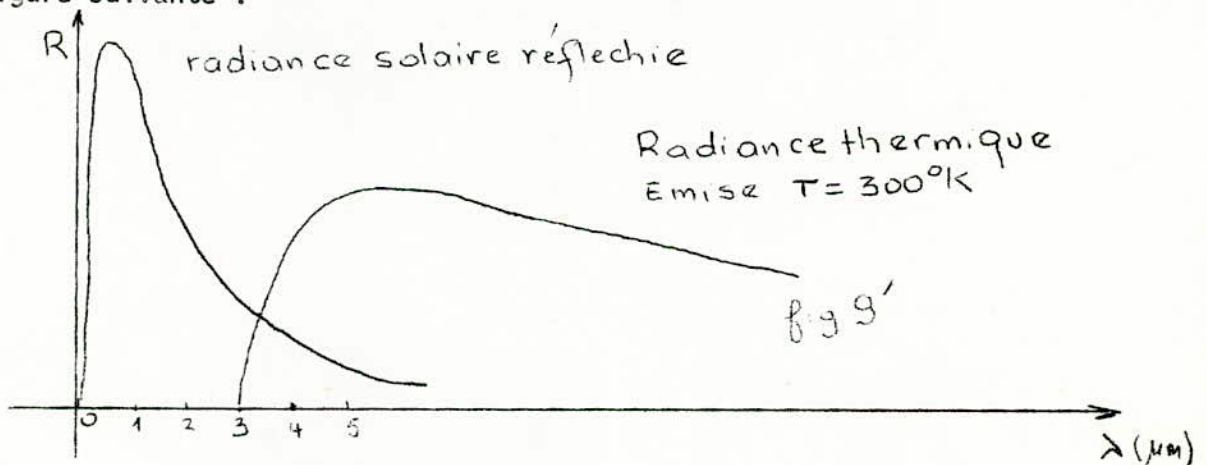 figure suivante :
R
radiance solaire réflechie
Radiance thermique
Emise T = 300°K
fig 9'
0 1 2 3 4 5
λ (μm)